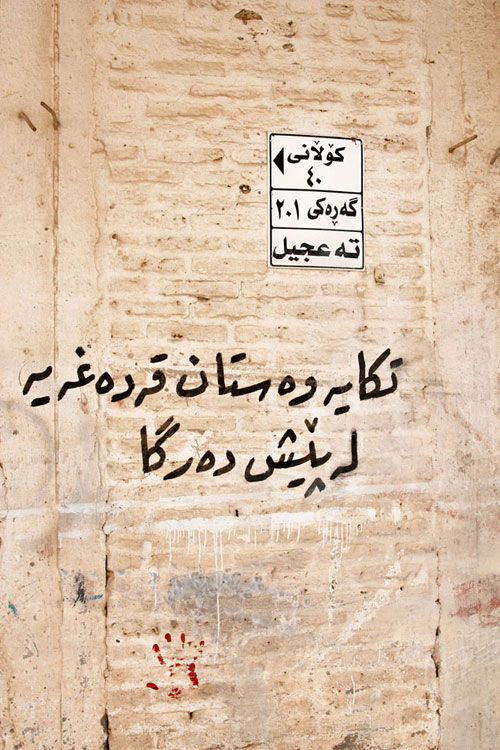 كۆڵانی
٤٠
گەڕەکی ٢٠١
تە عجیل
تکایە وەستان قردەغە یە
لە پێش دەرگا